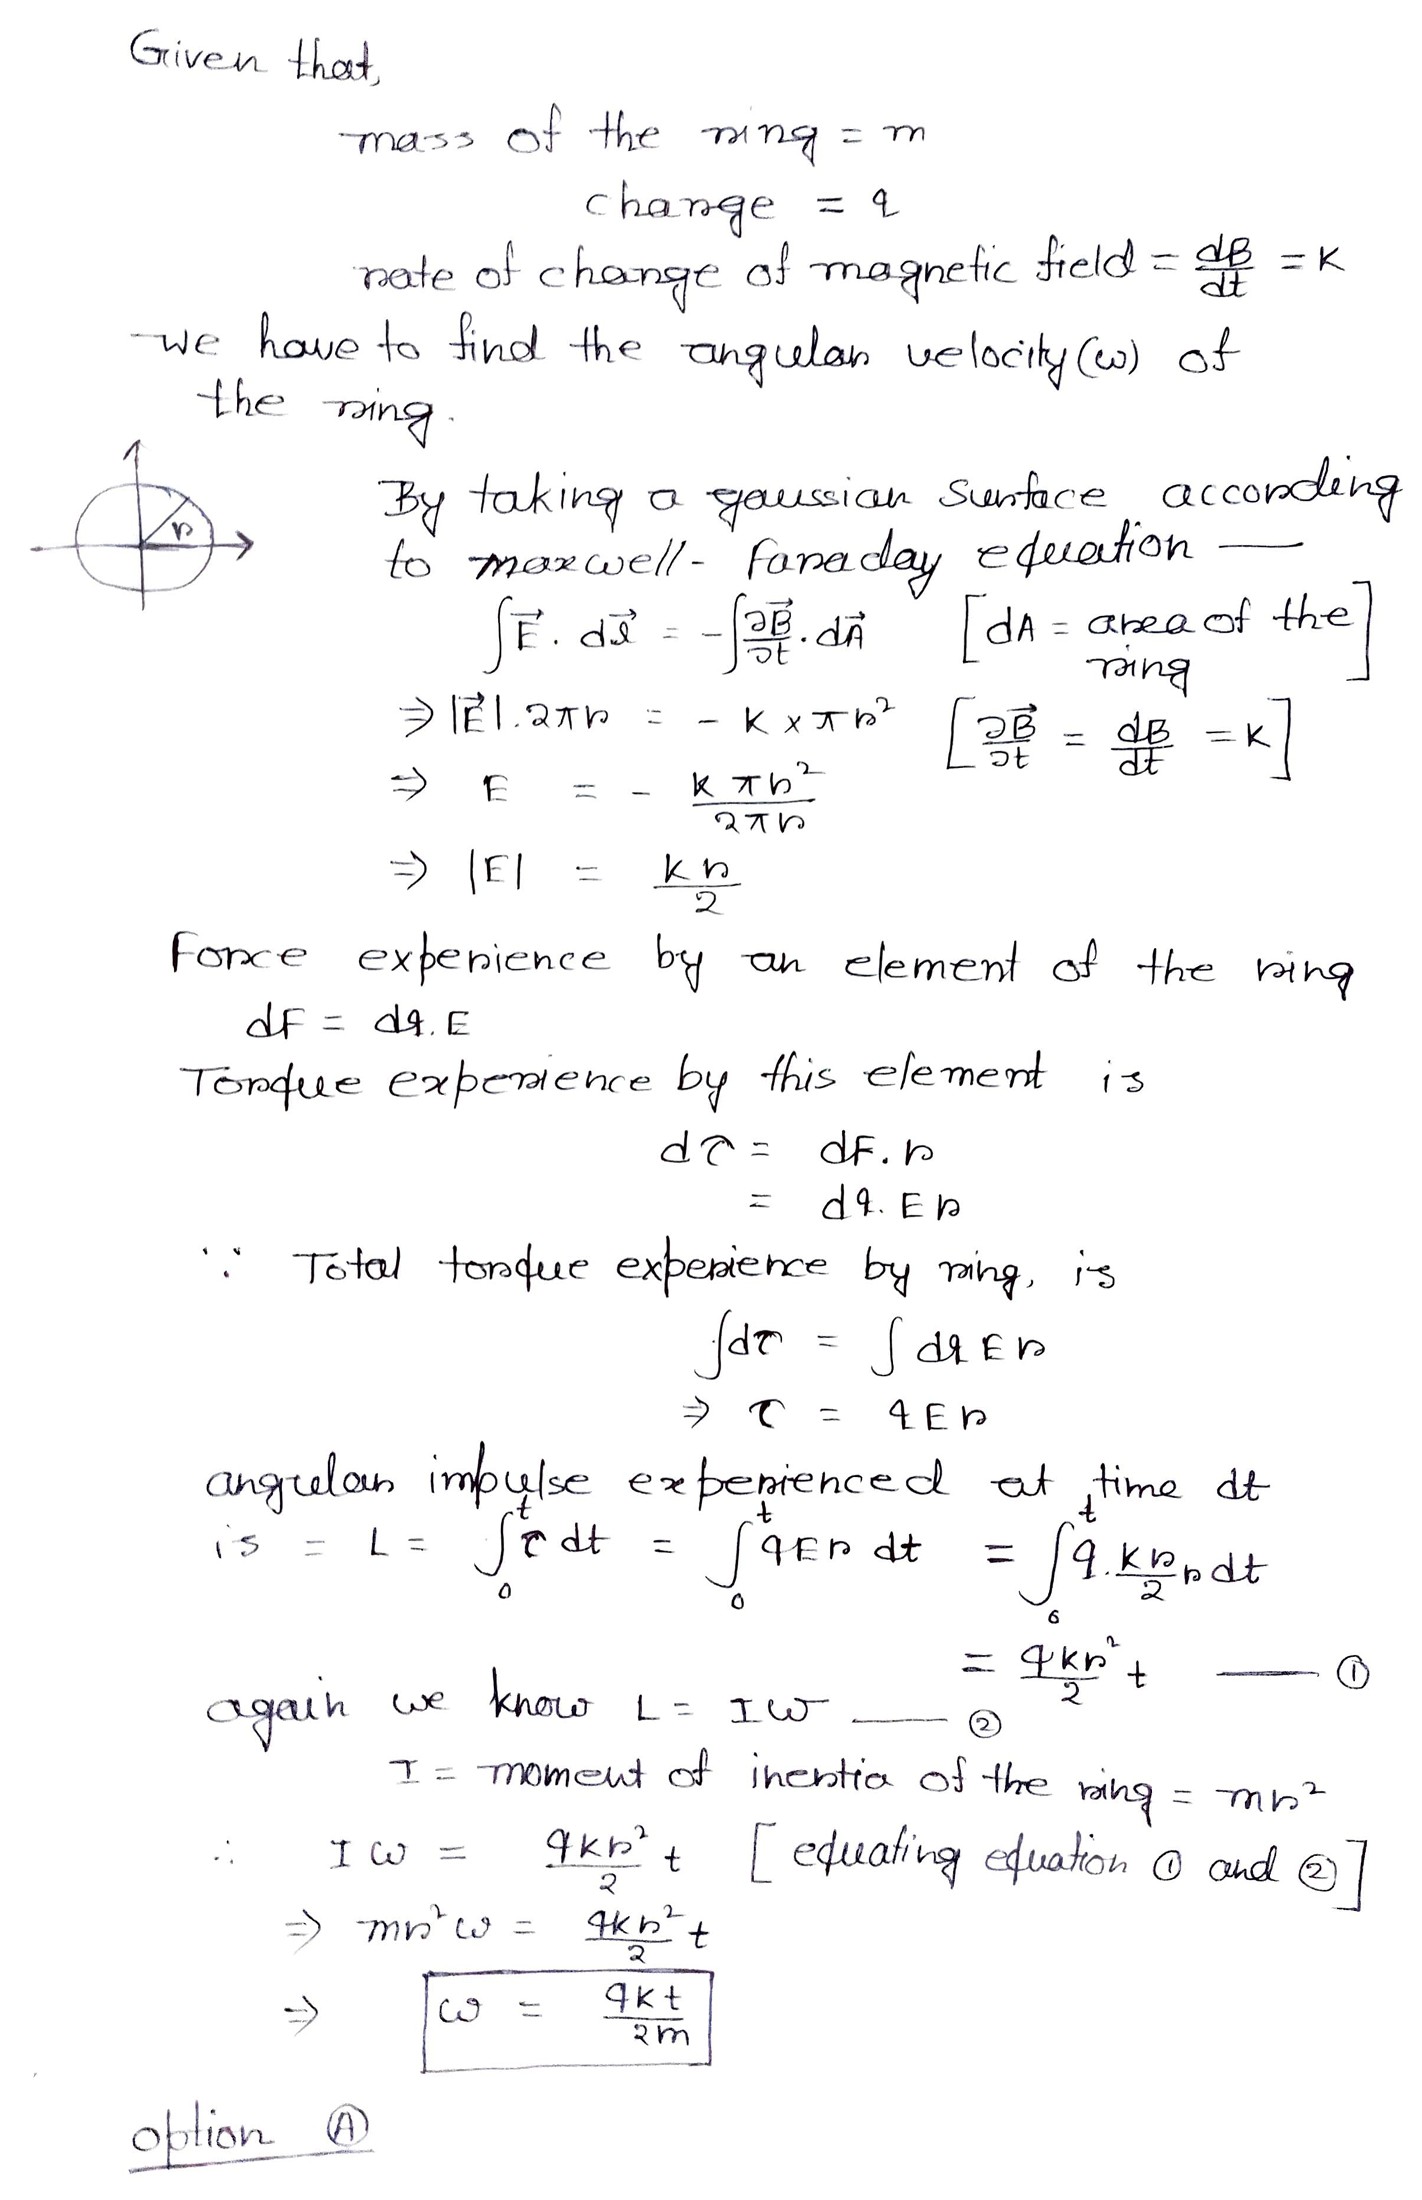 Given that,
mass of the ring = m
charge = q
rate of change of magnetic field = dB/dt = K
we have to find the angular velocity (ω) of
the ring.
r
By taking a gaussian surface according
to maxwell - Faraday equation —
∫E⃗ . dl⃗ = - ∫∂B⃗/∂t . dA⃗ [dA = area of the ring]
⇒ |E⃗| . 2πr = - K × πr² [∂B⃗/∂t = dB/dt = K]
⇒ E = - Kπr²/2πr
⇒ |E| = Kr/2
Force experience by an element of the ring
dF = dq. E
Torque experience by this element is
dτ = dF. r
= dq. E r
∵ Total torque experience by ring, is
∫dτ = ∫ dq E r
⇒ τ = q E r
angular impulse experienced at time dt
is = L = ∫₀ᵗ τ dt = ∫₀ᵗ q E r dt = ∫₀ᵗ q. Kr/2 r dt
= qKr²/2 t — ①
again we know L = Iω — ②
I = moment of inertia of the ring = mr²
∴ Iω = qKr²/2 t [equating equation ① and ②]
⇒ mr²ω = qKr²/2 t
⇒ ω = qKt/2m
option Ⓐ